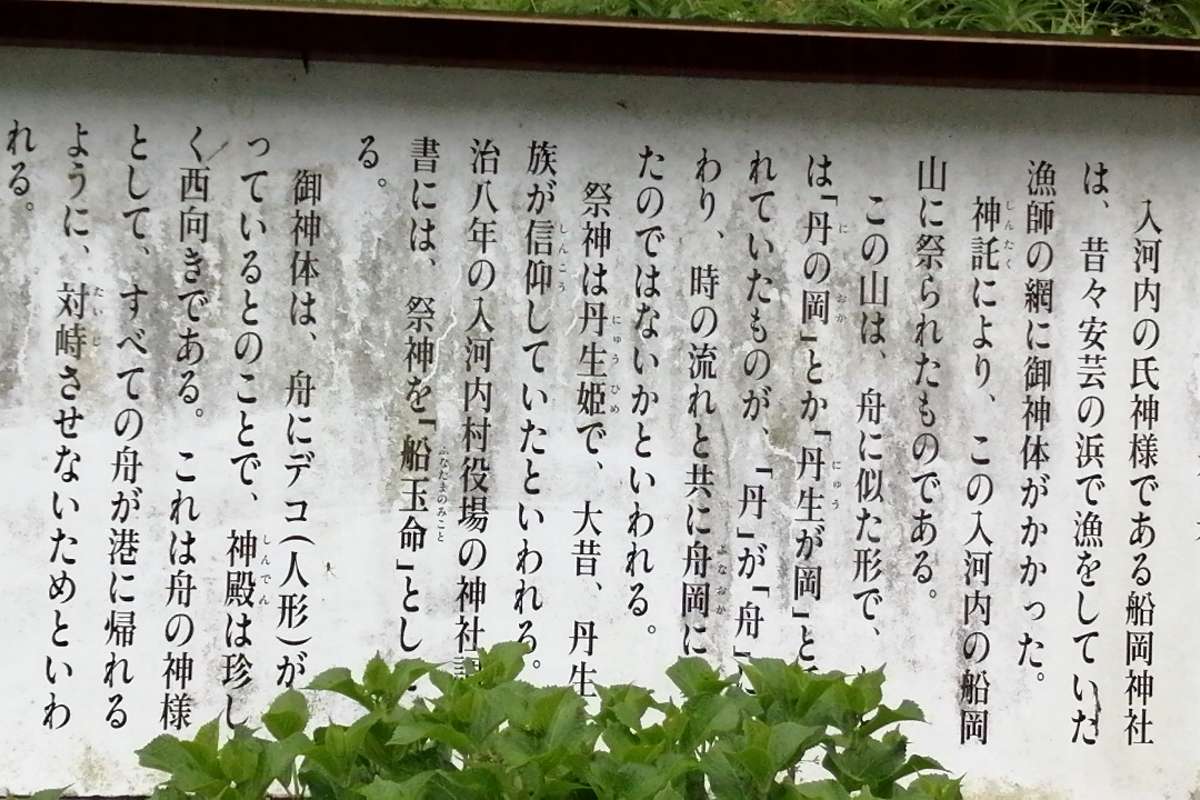 入河内の氏神様である船岡神社
は、昔々安芸の浜で漁をしていた
漁師の網に御神体がかかった。
神託により、この入河内の船岡
山に祭られたものである。
この山は、舟に似た形で、
は「丹の岡」とか「丹生が岡」と
れていたものが、「丹」が「舟」
わり、時の流れと共に舟岡に
たのではないかといわれる。
祭神は丹生姫で、大昔、丹生
族が信仰していたといわれる。
治八年の入河内村役場の神社
書には、祭神を「船玉命」とし
る。
御神体は、舟にデコ(人形)が
っているとのことで、神殿は珍し
く西向きである。これは舟の神様
として、すべての舟が港に帰れる
ように、対峙させないためといわ
れる。